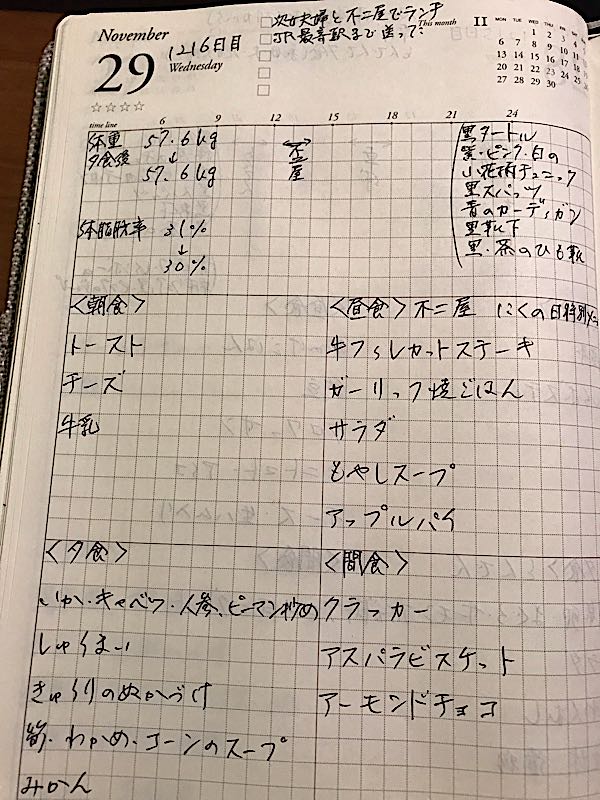 November
29
Wednesday
1216日目
次女夫婦と不二屋でランチ
JR最寄駅まで送って:
This month 11
MON TUE WED THU FRI
1 2 3
6 7 8 9 10
13 14 15 16 17
20 21 22 23 24
27 28 29 30
☆☆☆☆
time line 6 9 12 15 18 21 24
体重 57.6kg
夕食後 ↓
57.6kg
体脂肪率 31%
↓
30%
不二屋
黒タートル
黒・ピンク・白の
小花柄チュニック
黒スパッツ
青のカーディガン
黒靴下
黒・茶のひも靴
<朝食>
トースト
チーズ
牛乳
<昼食>不二屋 にくの日特別メニ
牛フィレカットステーキ
ガーリック焼ごはん
サラダ
もやしスープ
アップルパイ
<夕食>
いか・キャベツ・人参・ピーマン炒め
しゅうまい
きゅうりのぬかづけ
わかめ・コーンのスープ
みかん
<間食>
クラッカー
アスパラビスケット
アーモンドチョコ